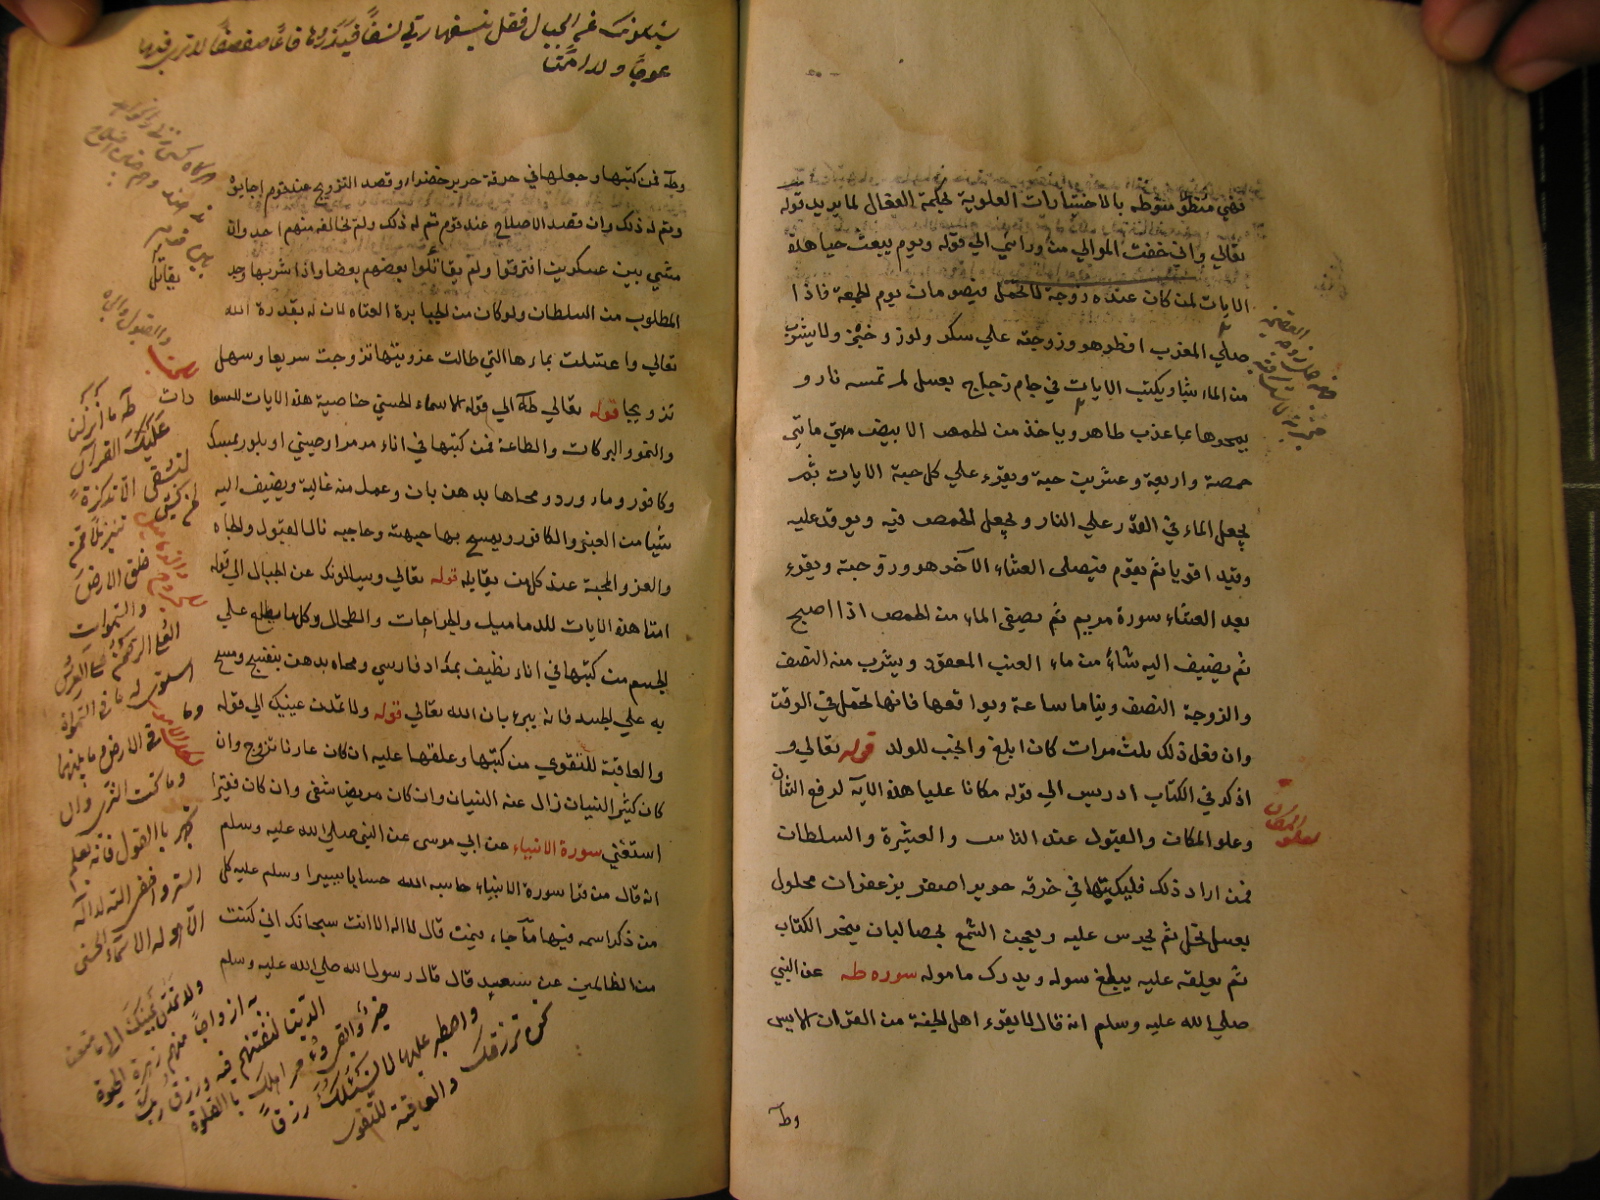 فهي منظومة منوطه بالاختيارات العلوية لحكمة الفعال لما يريد قوله
تعالي واني خفت الموالي من ورائي الي قوله ويوم يبعث حيا هذه
الايات لمن كان عنده زوجة لا تحمل فيصومان يوم الجمعة فاذا
صلي المغرب افطر هو وزوجته علي سكر ولوز وخبز ولا يشرب
من الماء شيا ويكتب الايات في جام زجاج بعسل لم تمسه نار و
يمحوها بما عذب طاهر وياخذ من الحمص الابيض
حمصة واربعة وعشرين حبة ويقرء علي كل حبة الايات ثم
يجعل الماء في القدر علي النار ويجعل الحمص فيه ويوقد عليه
وقيد اقويا ثم يقوم فيصلي العشاء الآخر هو وزوجته ويقرء
بعد العشاء سورة مريم ثم يصفي الماء من الحمص اذا اصبح
ثم يضيف اليه شاء من ماء العنب المعقود ويشرب منه النصف
والزوجة النصف ويناما ساعة ويواقعها فانها تحمل في الوقت
وان فعل ذلك ثلث مرات كان ابلغ وانجب للولد قوله تعالي و
اذكر في الكتاب ادريس الي قوله مكانا عليا هذه الآية لرفع الشان
وعلو المكان والقبول عند الناس والعشيرة والسلطان
فمن اراد ذلك فليكتبها في خرقه حرير اصفر بزعفران محلول
بعسل نحل ثم يحرس عليه ويعجن الشمع بحصالبان يبخر الكتاب
ثم يعلقه عليه يبلغ سوله ويدرك مامو له سوره طه عن النبي
صلي الله عليه وسلم انه قال لا يقرء اهل الجنة من القران الا يس
وطه
يسئلونك عن الجبال فقل ينسفها ربي نسفا فيذرها قاعا صفصفا لا تري فيها
عوجا ولا امتا
وطه فمن كتبها وجعلها في خرقة حرير خضراء وقصد التزويج عند قوم اجابوه
ويتم له ذلك وان قصد الاصلاح عند قوم تم له ذلك ولم يخالفه منهم احد وان
مشي بين عسكرين افترقوا ولم يقاتلوا بعضهم بعضا واذا شربها
المطلوب من السلطان ولو كان من الجبابرة العتاه لان له بقدرة الله
تعالي واغتسلت بماءها التي طالت عزوبتها تزوجت سريعا وسهل
تزويجا قوله تعالي طه الي قوله الاسماء الحسني خاصية هذه الايات
والنمو والبركات والطاعة فمن كتبها في اناء مرمر او صيني او بلور بمسك
وكافور وماء ورد ومحاها بدهن بان وعمل منه غالية ويضيف اليه
شيا من العنبر والكافور ويمسح بها جبهته وحاجبيه نال القبول والجاه
والعز والمحبة عند كل من يقابله قوله تعالي ويسالونك عن الجبال الي قوله
امتا هذه الايات للدماميل والجراحات والطحال وكل ما يطلع علي
الجسم من كتبها في اناء نظيف بمداد فارسي ومحاه بدهن بنفسج ومسح
به علي الجسد فانه يبرء باذن الله تعالي قوله ولا تمدن عينيك الي قوله
والعاقبة للتقوي من كتبها وعلقها عليه ان كان عازبا تزوج وان
كان كثير النسيان زال عنه النسيان وان كان مريضا شفي وان كان فقيرا
استغني سورة الانبياء عن ابي موسي عن النبي صلي الله عليه وسلم
انه قال من قرا سورة الانبياء حاسبه الله حسابا يسيرا وسلم عليه كل
من ذكر اسمه فيها ما جاء فيمن قال لا اله الا انت سبحانك اني كنت
من الظالمين عن سعيد قال قال رسول الله صلي الله عليه وسلم
طه ما انزلنا
عليك القرآن
لتشقي الا تذكرة
لمن يخشي تنزيلا ممن
خلق الارض
والسموات
العلي الرحمن علي العرش
استوي له ما في السموات
وما في الارض وما بينهما
وما تحت الثري وان
تجهر بالقول فانه يعلم
السر واخفي الله لا اله
الا هو له الاسماء الحسني
ولا تمدن عينيك الي ما متعنا
به ازواجا منهم زهرة الحيوة
الدنيا لنفتنهم فيه ورزق ربك
خير وابقي وأمر اهلك بالصلوة
واصطبر عليها لا نسئلك رزقا
نحن نرزقك والعاقبة للتقوي